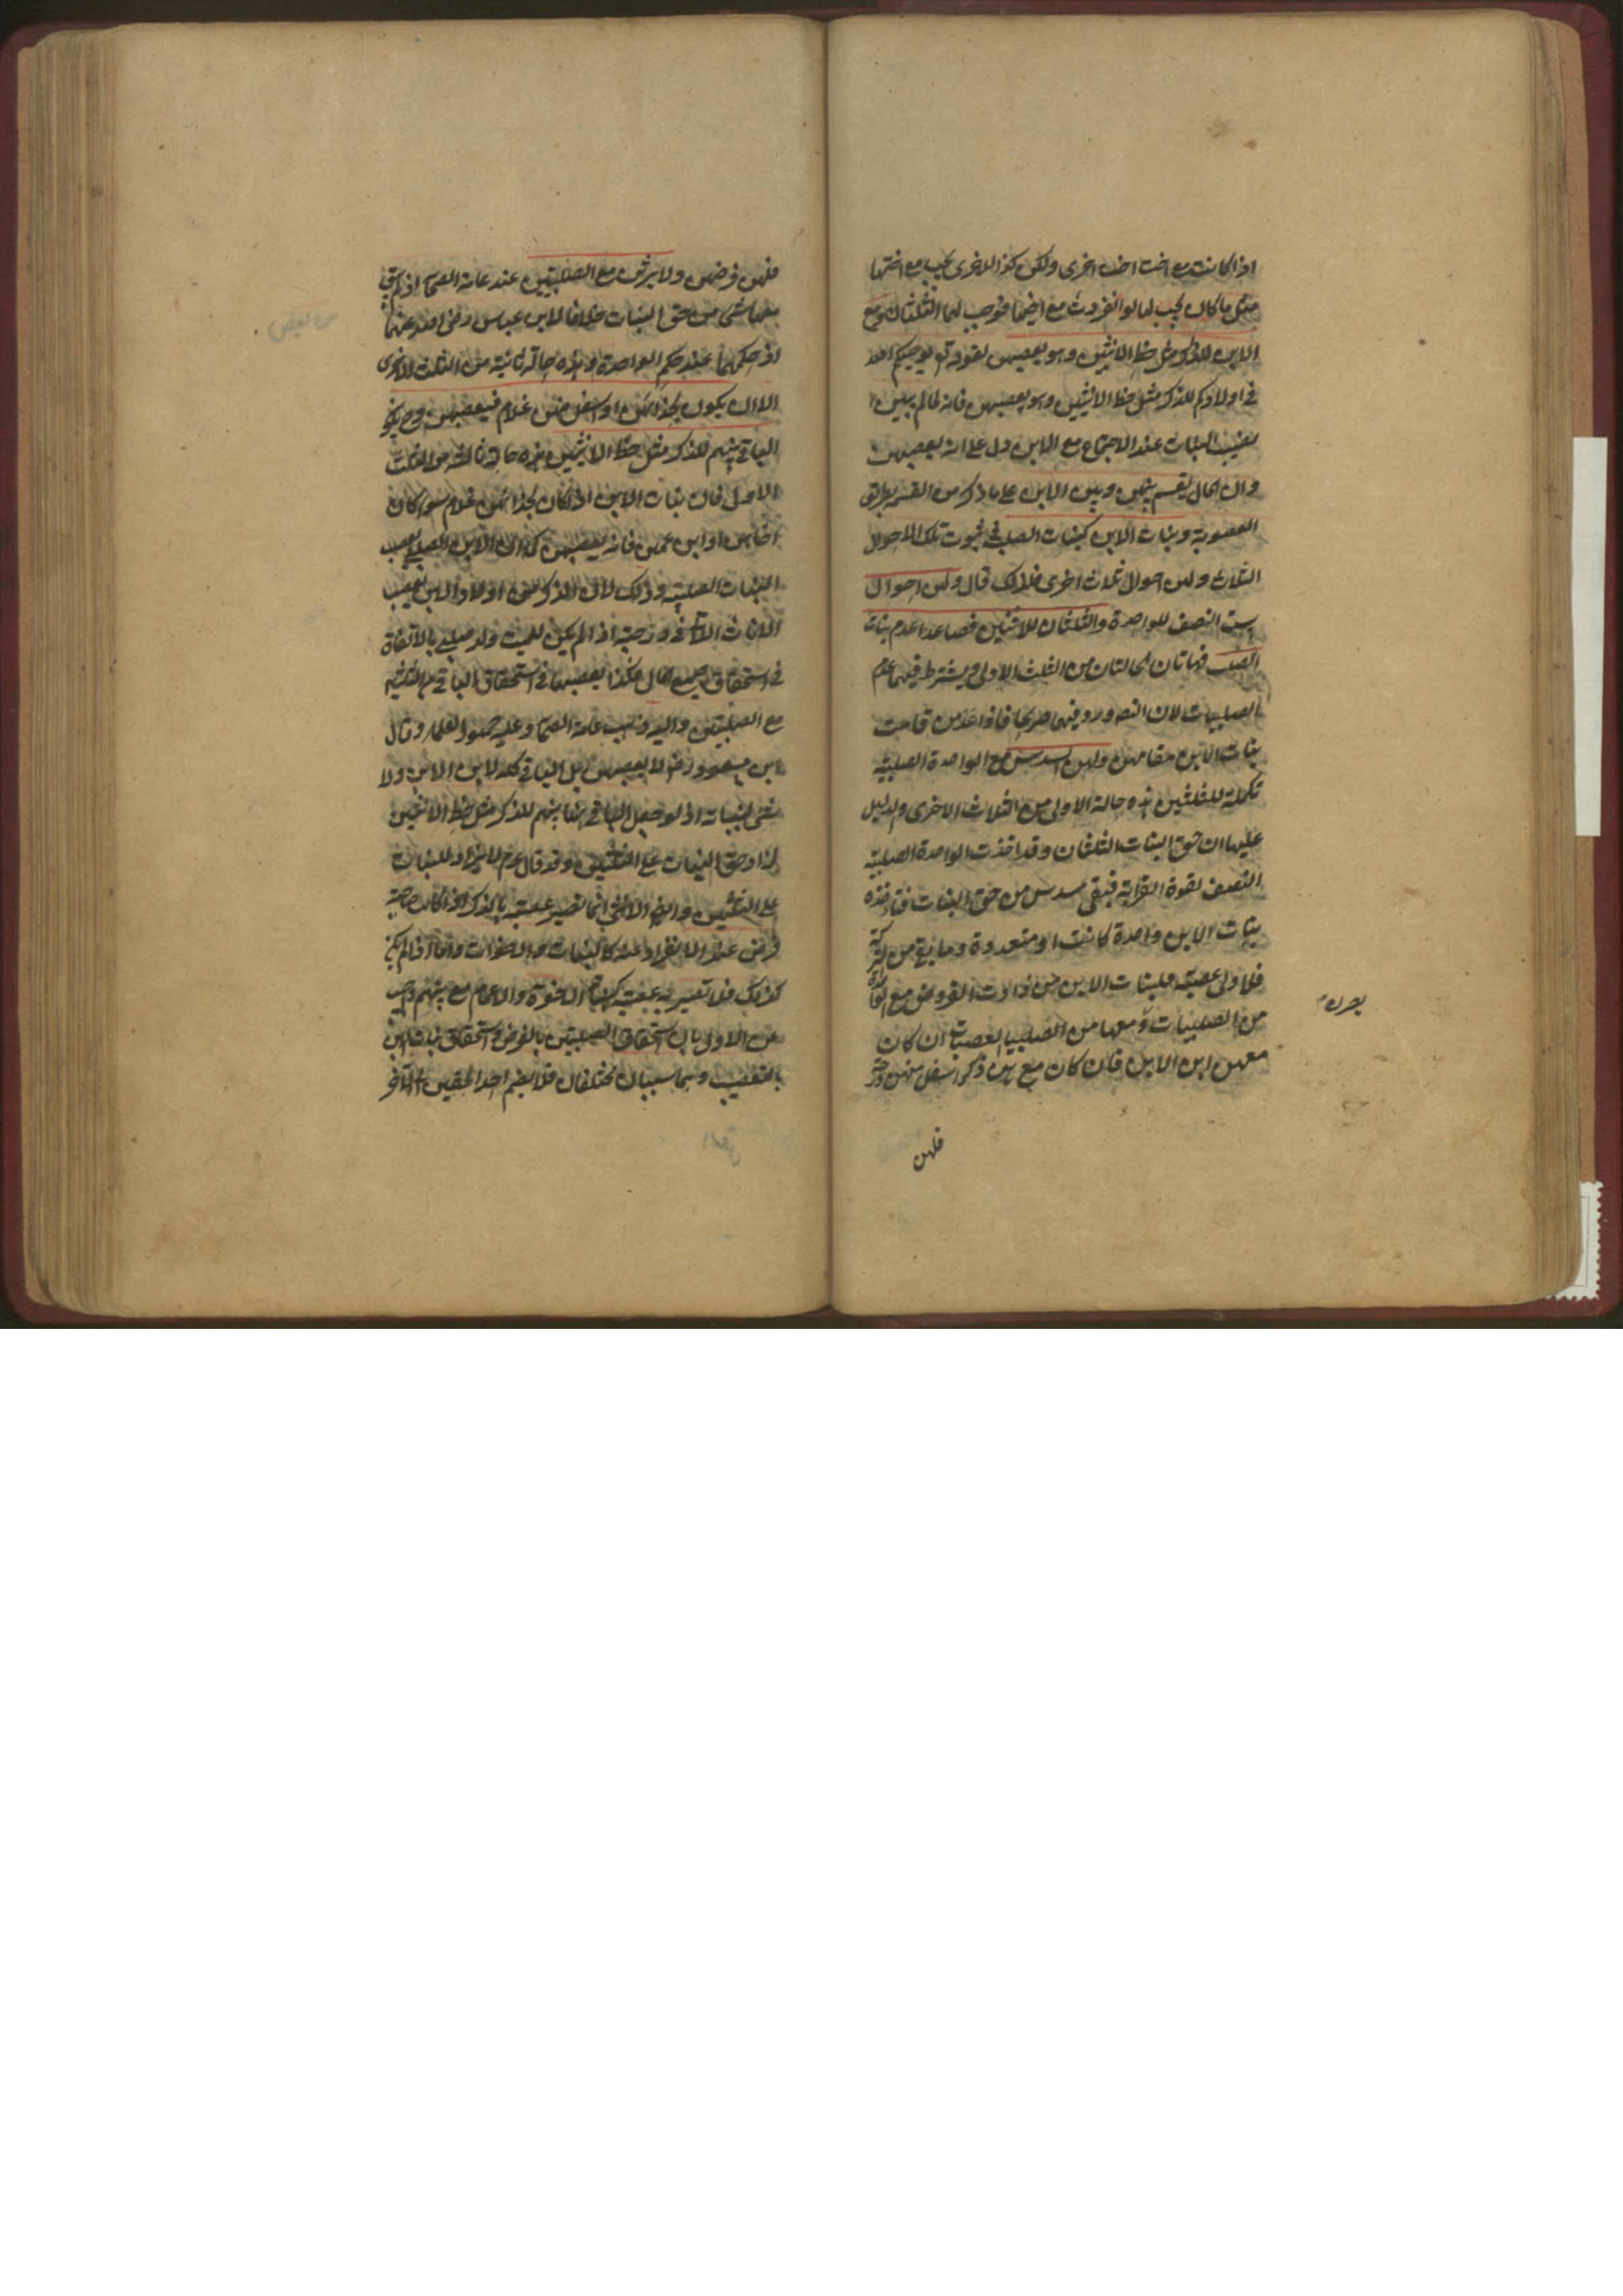 اذا كانت مع اخت اخرى ولكن كذا الاخرى يجب مع اختها
مثل ما كان يجب لها لو انفردت مع اخيها فوجب لها الثلثان ومع
الابن للذكر مثل حظ الانثيين وهو يعصبهن لقوله تع يوصيكم الله
في اولادكم للذكر مثل حظ الانثيين وهو يعصبهن فانه لما لم يبين
نصيب البنات عند الاجتماع مع الابن دل على انه يعصبهن
وان المال يقسم بينهن وبين الابن على ما ذكر من القسمة بطريق
العصوبة وبنات الابن كبنات الصلب في ثبوت تلك الاحوال
الثلاث ولهن احوال ثلاث اخرى فلذلك قال ولهن احوال
ست النصف للواحدة والثلثان للاثنتين فصاعدا عند عدم بنات
الصلب فهاتان الحالتان من الثلث الاولى ويشترط فيهما عدم
الصلبيات لان النص ورد فيهن صريحا فاذا عدمن قامت
بنات الابن مقامهن ولهن السدس مع الواحدة الصلبية
تكملة للثلثين هذه حالة الاولى من الثلاث الاخرى والدليل
عليها ان حق البنات الثلثان وقد اخذت الواحدة الصلبية
النصف لقوة القرابة فبقي سدس من حق البنات فتأخذه
بنات الابن واحدة كانت او متعددة وما بقي من التركة
فلاولى عصبة فبنات الابن من ذوات الفروض مع
من الصلبيات ان كان
معهن ابن الابن فان كان مع بنتين ذكر اسفل منهن درجة
فلهن
فلهن فرضهن ولا يرثن مع الصلبيتين عند عامة الصحابة اذ لم يبق
بعدهما شئ من حق البنات خلافا لابن عباس رضى الله عنهما
اذ حكمهما عنده حكم الواحدة وهذه حالة ثانية من الثلث الاخرى
الا ان يكون بحذائهن او اسفل منهن غلام فيعصبهن وح يكون
الباقي بينهم للذكر مثل حظ الانثيين هذه حالة ثالثة من الثلث
الاولى فان بنات الابن اذا كان بحذائهن غلام سواء كان
اخاهن او ابن عمهن فانه يعصبهن كما ان الابن الصلبي يعصب
البنات الصلبية وذلك لان الذكر من اولاد الابن يعصب
الاناث اللاتي في درجته اذا لم يكن للميت ولد صلبي بالاتفاق
في استحقاق جميع المال فكذا يعصبها في استحقاق الباقي من الثلثين
مع الصلبيتين واليه ذهب عامة الصحابة وعليه جمهور العلماء وقال
ابن مسعود رض لا يعصبهن بل الباقي كله لابن الابن ولا
شئ لبناته اذ لو جعل الباقي هنا بينهم للذكر مثل حظ الانثيين
لزاد حق البنات على الثلثين وقد قال عم لا يزاد للبنات
على الثلثين وايضا الانثى انما تصير عصبة بالذكر اذا كانت صاحبة
فرض عند الانفراد عنه كالبنات والاخوات واما اذا لم يكن
كذلك فلا تصير به عصبة كبنات الاخوة والاعمام مع بنيهم واجيب
عن الاول بان استحقاق الصلبيتين بالفرض واستحقاق بنات الابن
بالتعصيب وهما سببان مختلفان فلا يضم احد الحقين الى الآخر